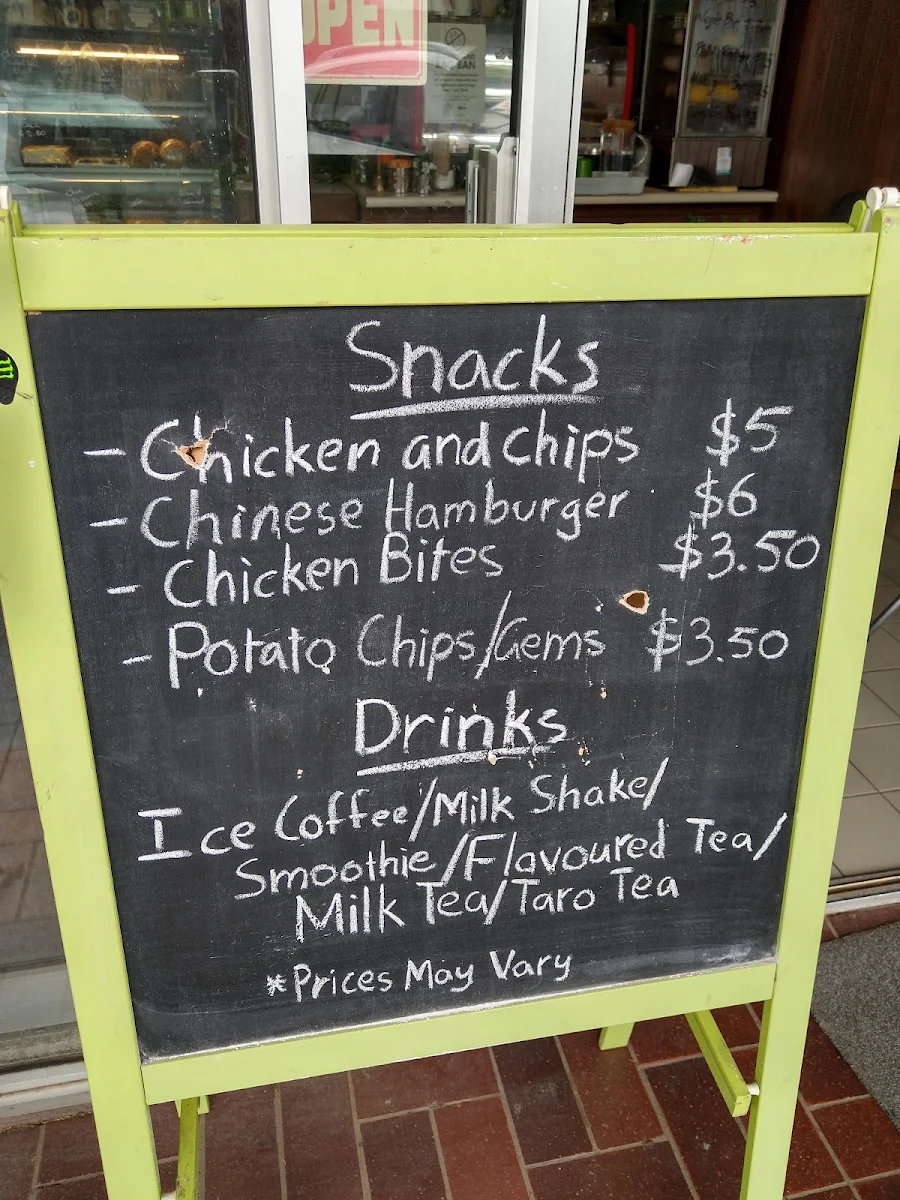 OPEN
BAN
Snacks
- Chicken and chips $5
- Chinese Hamburger $6
- Chicken Bites $3.50
- Potato Chips/Gems $3.50
Drinks
Ice Coffee/Milk Shake/
Smoothie/Flavoured Tea/
Milk Tea/Taro Tea
*Prices May Vary